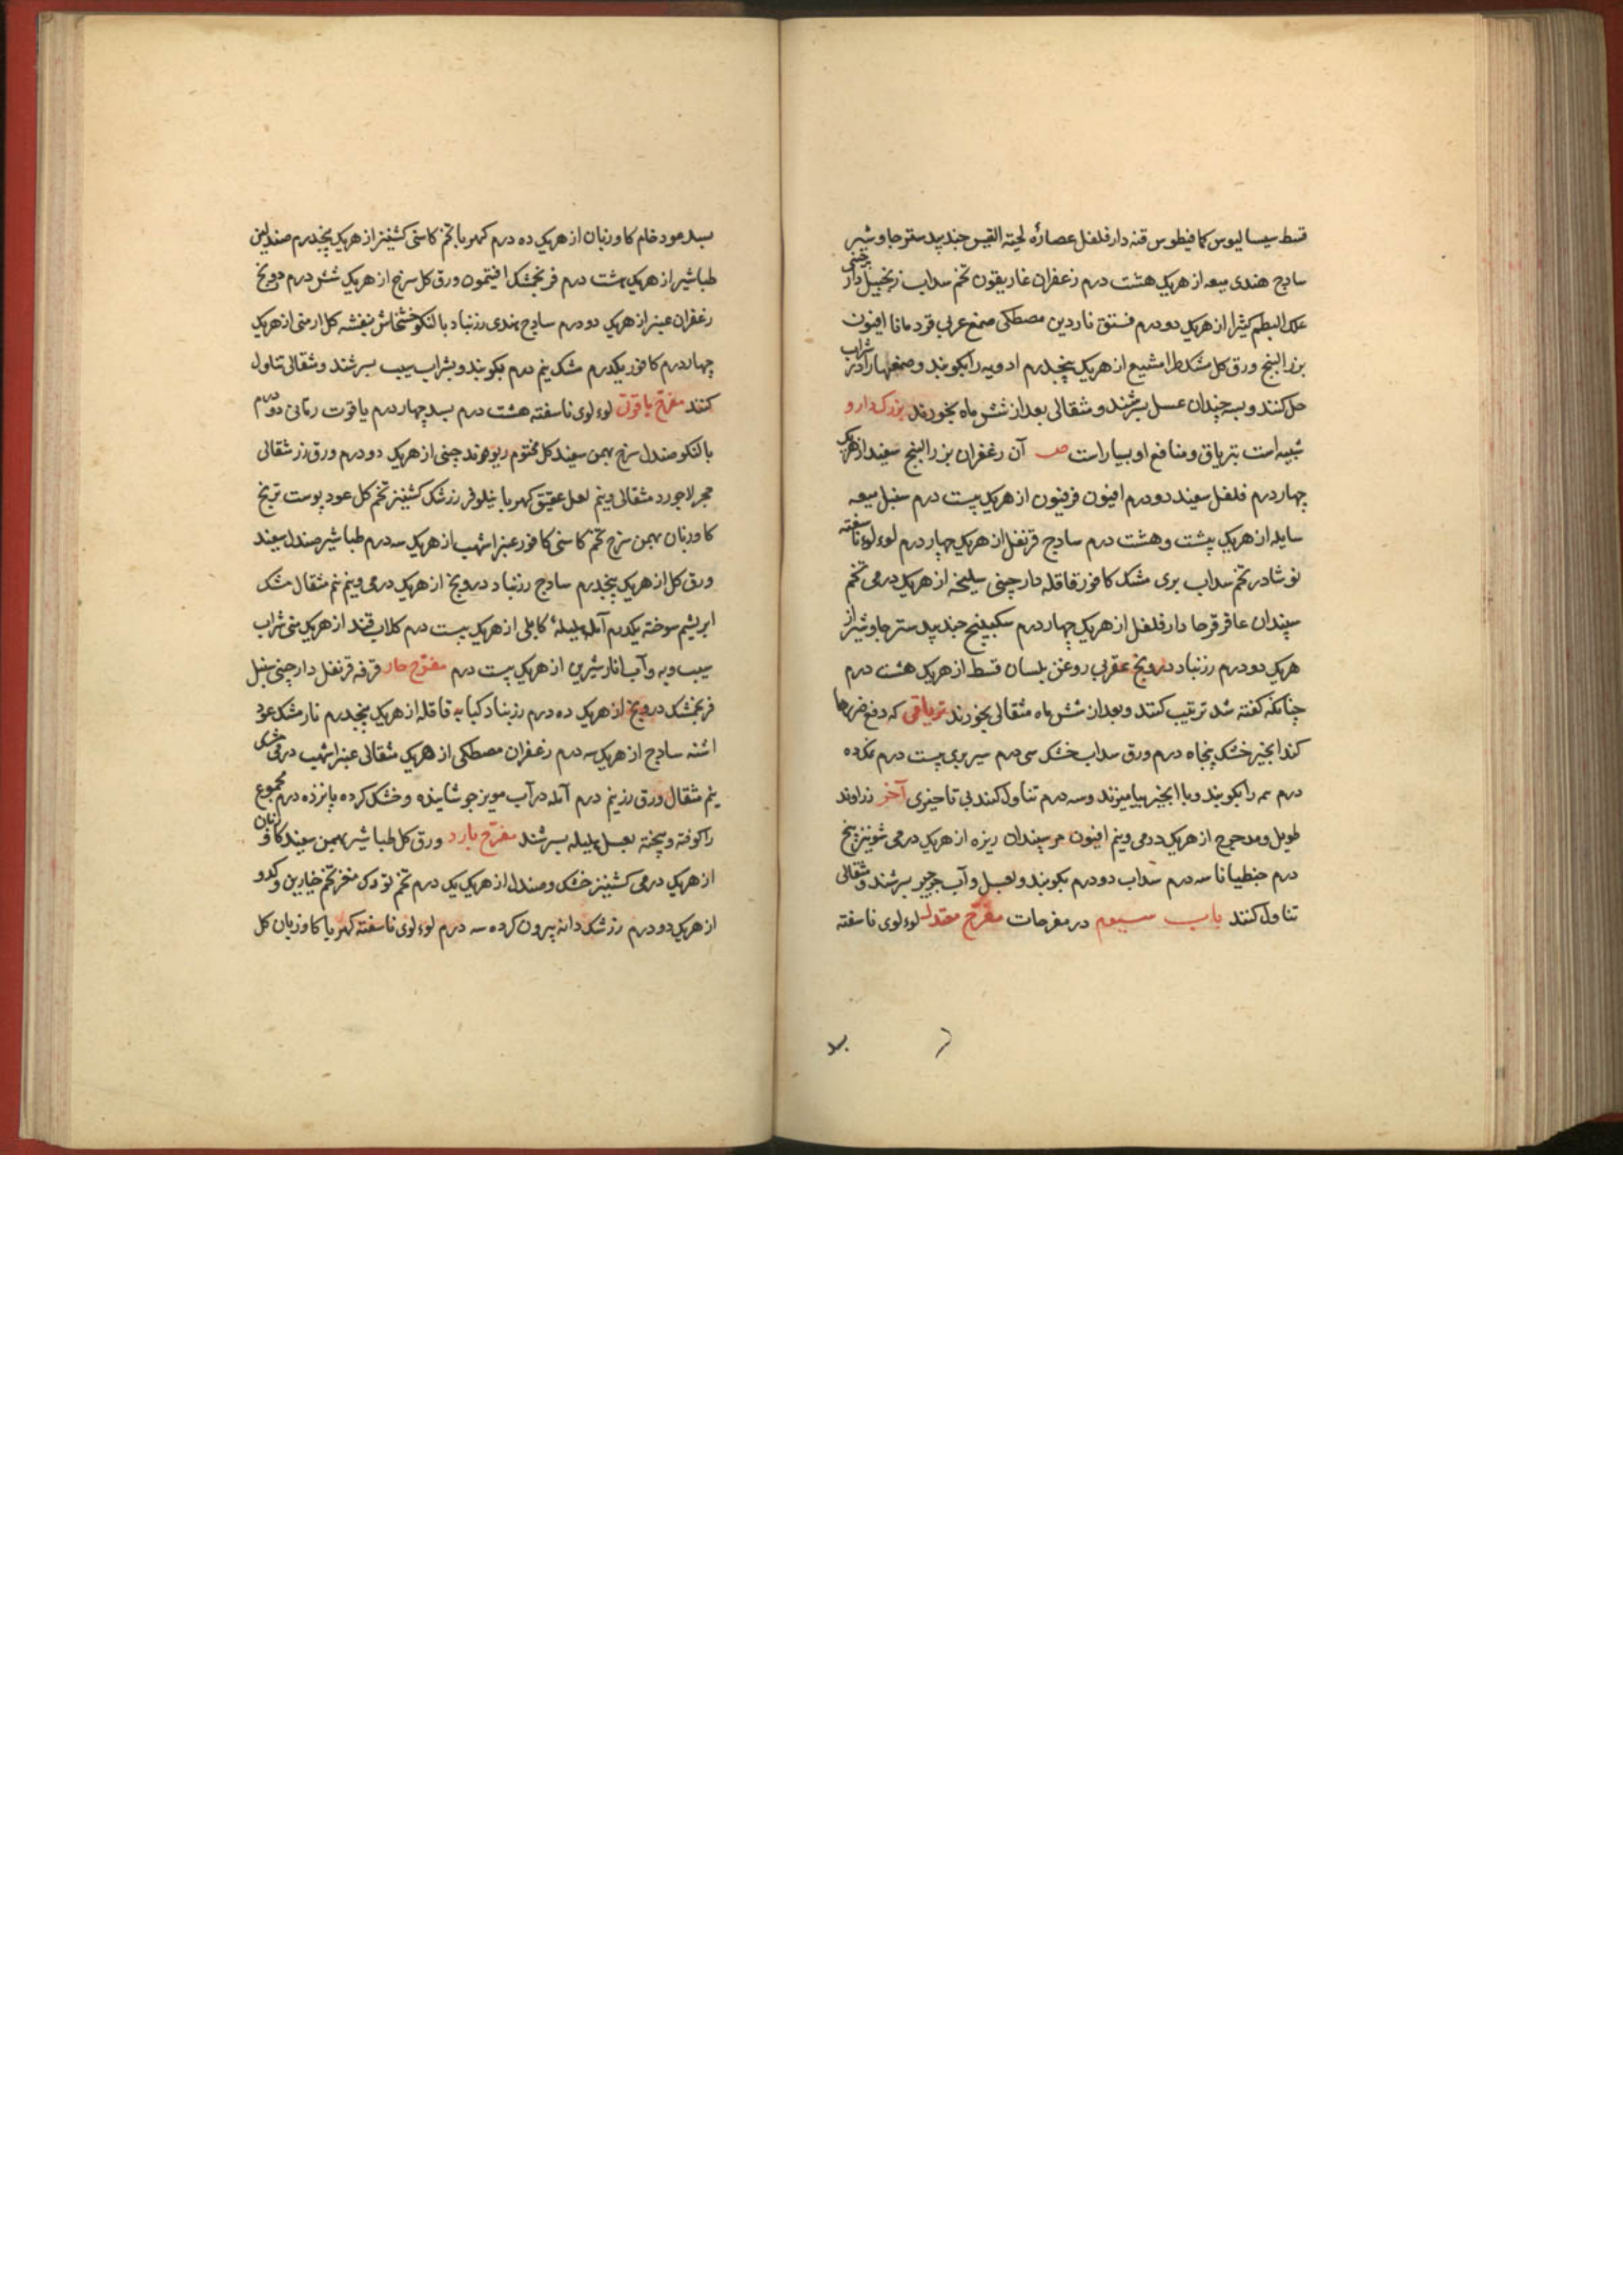 قسط سیسالیوس کمافیطوس قنه دارفلفل عصاره لحیته القیس جندبیدستر جاوشیر
سادج هندی میعه از هریک هشت درم زعفران غاریقون تخم سداب زنجبیل دارچینی
علک البطم کثیرا از هریک دو درم فستق ناردین مصطکی صمغ عربی قردمانا افیون
بزرالبنج ورق کل مشکطرامشیع از هریک پنجدرم ادویه را بکوبند و صمغها را در شراب
حل کنند و بسه چندان عسل بسرشند و مثقالی بعد از شش ماه بخورند بزرک دارو
شبیه است بتریاق و منافع او بسیار است ص آن زعفران بزرالبنج سفید از هریک
چهار درم فلفل سفید دو درم افیون فرفیون از هریک بیست درم سنبل میعه
سایله از هریک بیست و هشت درم سادج قرنفل از هریک چهار درم لوءلوء ناسفته
نوشادر تخم سداب بری مشک کافور قاقله دارچینی سلیخه از هریک درمی تخم
سپندان عاقرقرحا دارفلفل از هریک چهار درم سکبینج جندبیدستر جاوشیر از
هریک دو درم زرنباد درونج عقربی روغن بلسان قسط از هریک هشت درم
چنانکه کفته شد ترتیب کنند و بعد از شش ماه مثقالی بخورند تریاقی که دفع ضررها
کند انجیر خشک پنجاه درم ورق سداب خشک سی درم سیر بری بیست درم نمک ده
درم همه را بکوبند و با انجیر بیامیزند و سه درم تناول کنند بی تاخیری آخر زراوند
طویل و مدحرج از هریک درمی و نیم افیون مر سپندان ریزه از هریک درمی شونیز پنج
درم جنطیانا سه درم سداب دو درم بکوبند و بعسل و آب جرجیر بسرشند و مثقالی
تناول کنند باب سیوم در مفرحات مفرح معتدل لوءلوی ناسفته
بسد عود خام کاوزبان از هریک ده درم کهربا تخم کاسنی کشنیز از هریک پنجدرم صندلین
طباشیر از هریک هشت درم فرنجمشک افتیمون ورق کل سرخ از هریک شش درم درونج
زعفران عنبر از هریک دو درم سادج هندی زرنباد بالنکو خشخاش بنفشه کل ارمنی از هریک
چهار درم کافور یکدرم مشک نیم درم بکوبند و بشراب سیب بسرشند و مثقالی تناول
کنند مفرح یاقوتی لوءلوی ناسفته هشت درم بسد چهار درم یاقوت رمانی دو درم
بالنکو صندل سرخ بهمن سفید کل مختوم ریوند چینی از هریک دو درم ورق زر مثقالی
حجر لاجورد مثقالی و نیم لعل عقیق کهربا نیلوفر زرشک کشنیز تخم کل عود پوست ترنج
کاوزبان بهمن سرخ تخم کاسنی کافور عنبر اشهب از هریک سه درم طباشیر صندل سفید
ورق کل از هریک پنجدرم سادج زرنباد درونج از هریک درمی و نیم نیم مثقال مشک
ابریشم سوخته یکدرم آمله هلیلهٔ کابلی از هریک بیست درم کلاب قند از هریک منی شراب
سیب و به و آب انار شیرین از هریک بیست درم مفرح حار قرفه قرنفل دارچینی سنبل
فرنجمشک درونج از هریک ده درم زرنباد کبابه قاقله از هریک پنجدرم نارمشک عود
اشنه سادج از هریک سه درم زعفران مصطکی از هریک مثقالی عنبر اشهب درمی
نیم مثقال ورق زر نیم درم آمله در آب مویز جوشانیده و خشک کرده پانزده درم مجموع
را کوفته و بیخته بعسل هلیله بسرشند مفرح بارد ورق کل طباشیر بهمن سفید کاوزبان
از هریک درمی کشنیز خشک و صندل از هریک یک درم تخم تودری مغز تخم خیارین و کدو
از هریک دو درم زرشک دانه بیرون کرده سه درم لوءلوی ناسفته کهربا کاوزبان کل